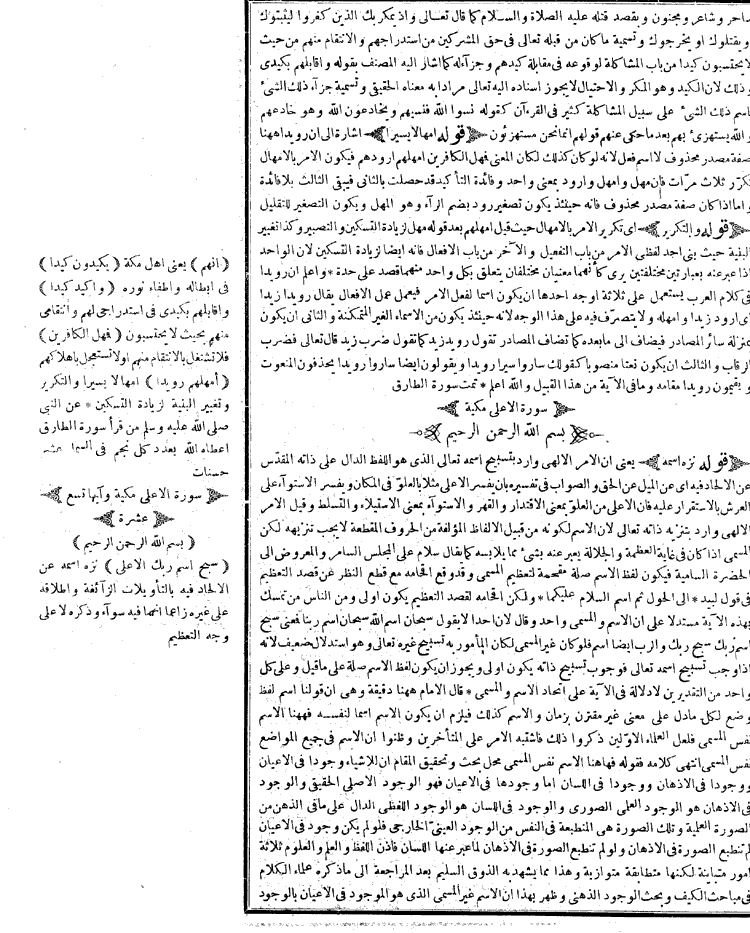 ساحر وشاعر ومجنون وبقصد قتله عليه الصلاة والسلام كما قال تعالى واذ يمكر بك الذين كفروا ليثبتوك
ويقتلوك او يخرجوك وتسمية ما كان من قبله تعالى فى حق المشركين من استدراجهم والانتقام منهم من حيث
لايحتسبون كيدا من باب المشاكلة لوقوعه فى مقابلة كيدهم وجزآءله كما اشار اليه المصنف بقوله واقابلهم بكيدى
وذلك لان الكيد وهو المكر والاحتيال لايجوز اسناده اليه تعالى مرادا به معناه الحقيقى وتسمية جزآء ذلك الشئ
باسم ذلك الشئ على سبيل المشاكلة كثير فى القرءآن كقوله نسوا الله فنسيهم ويخادعون الله وهو خادعهم
والله يستهزئ بهم بعد ما حكى عنهم قولهم انما نحن مستهزئون قوله امهالا يسيرا اشارة الى ان رويدا ههنا
صفة مصدر محذوف لا اسم فعل لانه لو كان كذلك لكان المعنى فمهل الكافرين امهلهم ارودهم فيكون الامر بالامهال
تكرّر ثلاث مرّات فان مهل وامهل وارود بمعنى واحد وفائدة التأكيد قد حصلت بالثانى فيبقى الثالث بلا فائدة
واما اذا كان صفة مصدر محذوف فانه حينئذ يكون تصغير رود بضم الرآء وهو المهل ويكون التصغير للتقليل
قوله والتكرير اى تكرير الامر بالامهال حيث قيل امهلهم بعد قوله مهل لزيادة التسكين والتصبير وكذا تغيير
البنية حيث بنى احد لفظى الامر من باب التفعيل والآخر من باب الافعال فانه ايضا لزيادة التسكين لان الواحد
اذا عبر عنه بعبارتين مختلفتين يرى كأنهما معنيان مختلفان يتعلق بكل واحد منهما قصد على حدة * واعلم ان رويدا
فى كلام العرب يستعمل على ثلاثة اوجه احدها ان يكون اسما لفعل الامر فيعمل عمل الافعال يقال رويدا زيدا
اى ارود زيدا وامهله ولايتصرّف فيه على هذا الوجه لانه حينئذ يكون من الاسماء الغير المتمكنة والثانى ان يكون
بمنزلة سائر المصادر فيضاف الى ما بعده كما تضاف المصادر تقول رويد زيد كما تقول ضرب زيد قال تعالى فضرب
الرقاب والثالث ان يكون نعتا منصوبا كقولك ساروا سيرا رويدا ويقولون ايضا ساروا رويدا يحذفون المنعوت
ويقيمون رويدا مقامه وما فى الآية من هذا القبيل والله اعلم * تمت سورة الطارق
سورة الاعلى مكية
بسم الله الرحمن الرحيم
قوله نزه اسمه يعنى ان الامر الالهى وارد بتسبيح اسمه تعالى الذى هو اللفظ الدال على ذاته المقدّس
عن الالحاد فيه اى عن الميل عن الحق والصواب فى تفسيره بان يفسر الاعلى مثلا بالعلوّ فى المكان ويفسر الاستوآء على
العرش بالاستقرار عليه فان الاعلى من العلوّ بمعنى الاقتدار والقهر والاستوآء بمعنى الاستيلاء والتسلط وقيل الامر
الالهى وارد بتنزيه ذاته تعالى لان الاسم لكونه من قبيل الالفاظ المؤلفة من الحروف المقطعة لايجب تنزيهه لكن
المسمى اذا كان فى غاية العظمة والجلالة يعبر عنه بشئ مما يلابسه كما يقال سلام على المجلس السامر والمعروض الى
الحضرة السامية فيكون لفظ الاسم صلة مقحمة لتعظيم المسمى وقد وقع اقحامه مع قطع النظر عن قصد التعظيم
فى قول لبيد * الى الحول ثم اسم السلام عليكما * ولكن اقحامه لقصد التعظيم يكون اولى ومن الناس من تمسك
بهذه الآية مستدلا على ان الاسم والمسمى واحد وقال لان احدا لايقول سبحان اسم الله سبحان اسم ربنا فمعنى سبح
اسم ربك سبح ربك والرب ايضا اسم فلو كان غير المسمى لكان المأمور به تسبيح غيره تعالى وهو استدلال ضعيف لانه
اذا وجب تسبيح اسمه تعالى فوجوب تسبيح ذاته يكون اولى ويجوز ان يكون لفظ الاسم صلة على ما قيل وعلى كل
واحد من التقديرين لا دلالة فى الآية على اتحاد الاسم والمسمى * قال الامام ههنا دقيقة وهى ان قولنا اسم لفظ
وضع لكل ما دل على معنى غير مقترن بزمان والاسم كذلك فيلزم ان يكون الاسم اسما لنفسه فههنا الاسم
نفس المسمى فلعل العلماء الاوّلين ذكروا ذلك فاشتبه الامر على المتأخرين وظنوا ان الاسم فى جميع المواضع
نفس المسمى انتهى كلامه فقوله فهاهنا الاسم نفس المسمى محل بحث وتحقيق المقام ان للاشياء وجودا فى الاعيان
ووجودا فى الاذهان ووجودا فى اللسان اما وجودها فى الاعيان فهو الوجود الاصلى الحقيقى والوجود
فى الاذهان هو الوجود العلمى الصورى والوجود فى اللسان هو الوجود اللفظى الدال على ما فى الذهن من
الصورة العلمية وتلك الصورة هى المنطبعة فى النفس من الوجود العينىّ الخارجى فلو لم يكن وجود فى الاعيان
لم تنطبع الصورة فى الاذهان ولو لم تنطبع الصورة فى الاذهان لما عبر عنها اللسان فاذن اللفظ والعلم والمعلوم ثلاثة
امور متباينة لكنها متطابقة متوازية وهذا مما يشهد به الذوق السليم بعد المراجعة الى ما ذكره علماء الكلام
فى مباحث الكيف وبحث الوجود الذهنى وظهر بهذا ان الاسم غير المسمى الذى هو الموجود فى الاعيان بالوجود
(انهم) يعنى اهل مكة (يكيدون كيدا)
فى ابطاله واطفاء نوره (واكيد كيدا)
واقابلهم بكيدى فى استدراجى لهم وانتقامى
منهم بحيث لايحتسبون (فمهل الكافرين)
فلا تشتغل بالانتقام منهم اولا تستعجل باهلاكهم
(امهلهم رويدا) امهالا يسيرا والتكرير
وتغيير البنية لزيادة التسكين * عن النبى
صلى الله عليه وسلم من قرأ سورة الطارق
اعطاه الله بعدد كل نجم فى السما عشر
حسنات
سورة الاعلى مكية وآيها تسع
عشرة
(بسم الله الرحمن الرحيم)
(سبح اسم ربك الاعلى) نزه اسمه عن
الالحاد فيه بالتأويلات الزآئغة واطلاقه
على غيره زاعما انهما فيه سوآء وذكره لا على
وجه التعظيم